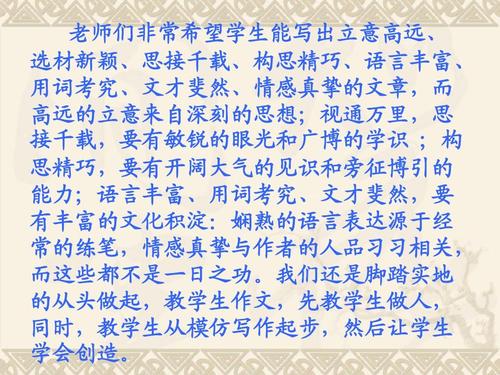 老师们非常希望学生能写出立意高远、
选材新颖、思接千载、构思精巧、语言丰富、
用词考究、文才斐然、情感真挚的文章，而
高远的立意来自深刻的思想；视通万里，思
接千载，要有敏锐的眼光和广博的学识 ；构
思精巧，要有开阔大气的见识和旁征博引的
能力；语言丰富、用词考究、文才斐然，要
有丰富的文化积淀：娴熟的语言表达源于经
常的练笔，情感真挚与作者的人品习习相关，
而这些都不是一日之功。我们还是脚踏实地
的从头做起，教学生作文，先教学生做人，
同时，教学生从模仿写作起步，然后让学生
学会创造。